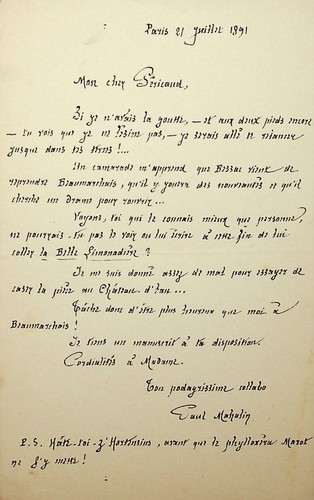 Paris 21 juillet 1891
Mon cher Péricaud,
Si je n'avais la goutte, — et aux deux pieds encor
— tu vois que je ne lésine pas, — je serais allé te relancer
jusque dans tes terres !...
Un camarade m'apprend que Bessac vient de
reprendre Beaumarchais, qu'il y jouera des nouveautés et qu'il
cherche un drame pour rouvrir...
Voyons, toi qui le connais mieux que personne,
ne pourrais-tu pas le voir ou lui écrire à cette fin de lui
coller la Belle Limonadière ?
Je me suis donné assez de mal pour essayer de
caser la pièce au Château d'Eau...
Tâche donc d'être plus heureux que moi à
Beaumarchais !
Je tiens un manuscrit à ta disposition.
Cordialités à Madame.
Ton podagrissime collabo
Paul Mahalin
P.S. Hâte-toi-z'Hortensius, avant que le phylloxéra Marot
ne s'y mette !